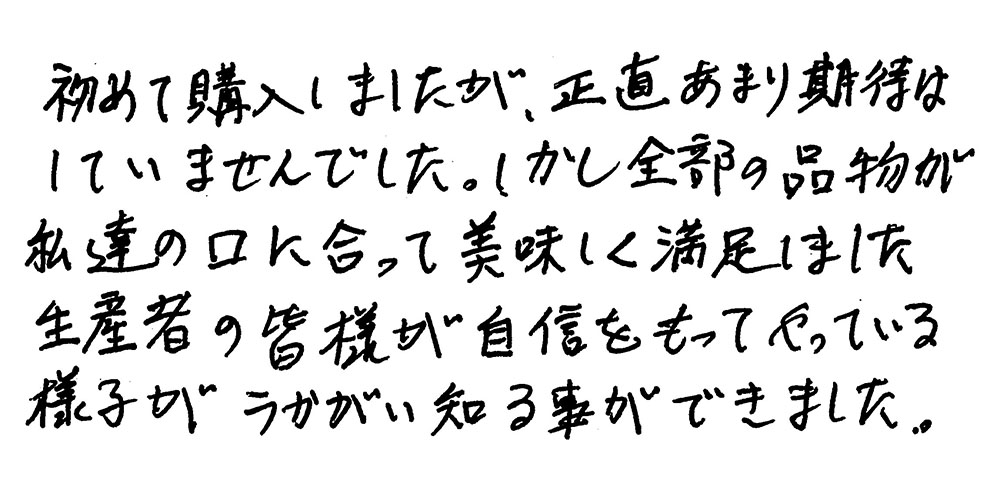 初めて購入しましたが、正直あまり期待は
していませんでした。しかし全部の品物が
私達の口に合って美味しく満足しました
生産者の皆様が自信をもってやっている
様子がうかがい知る事ができました。